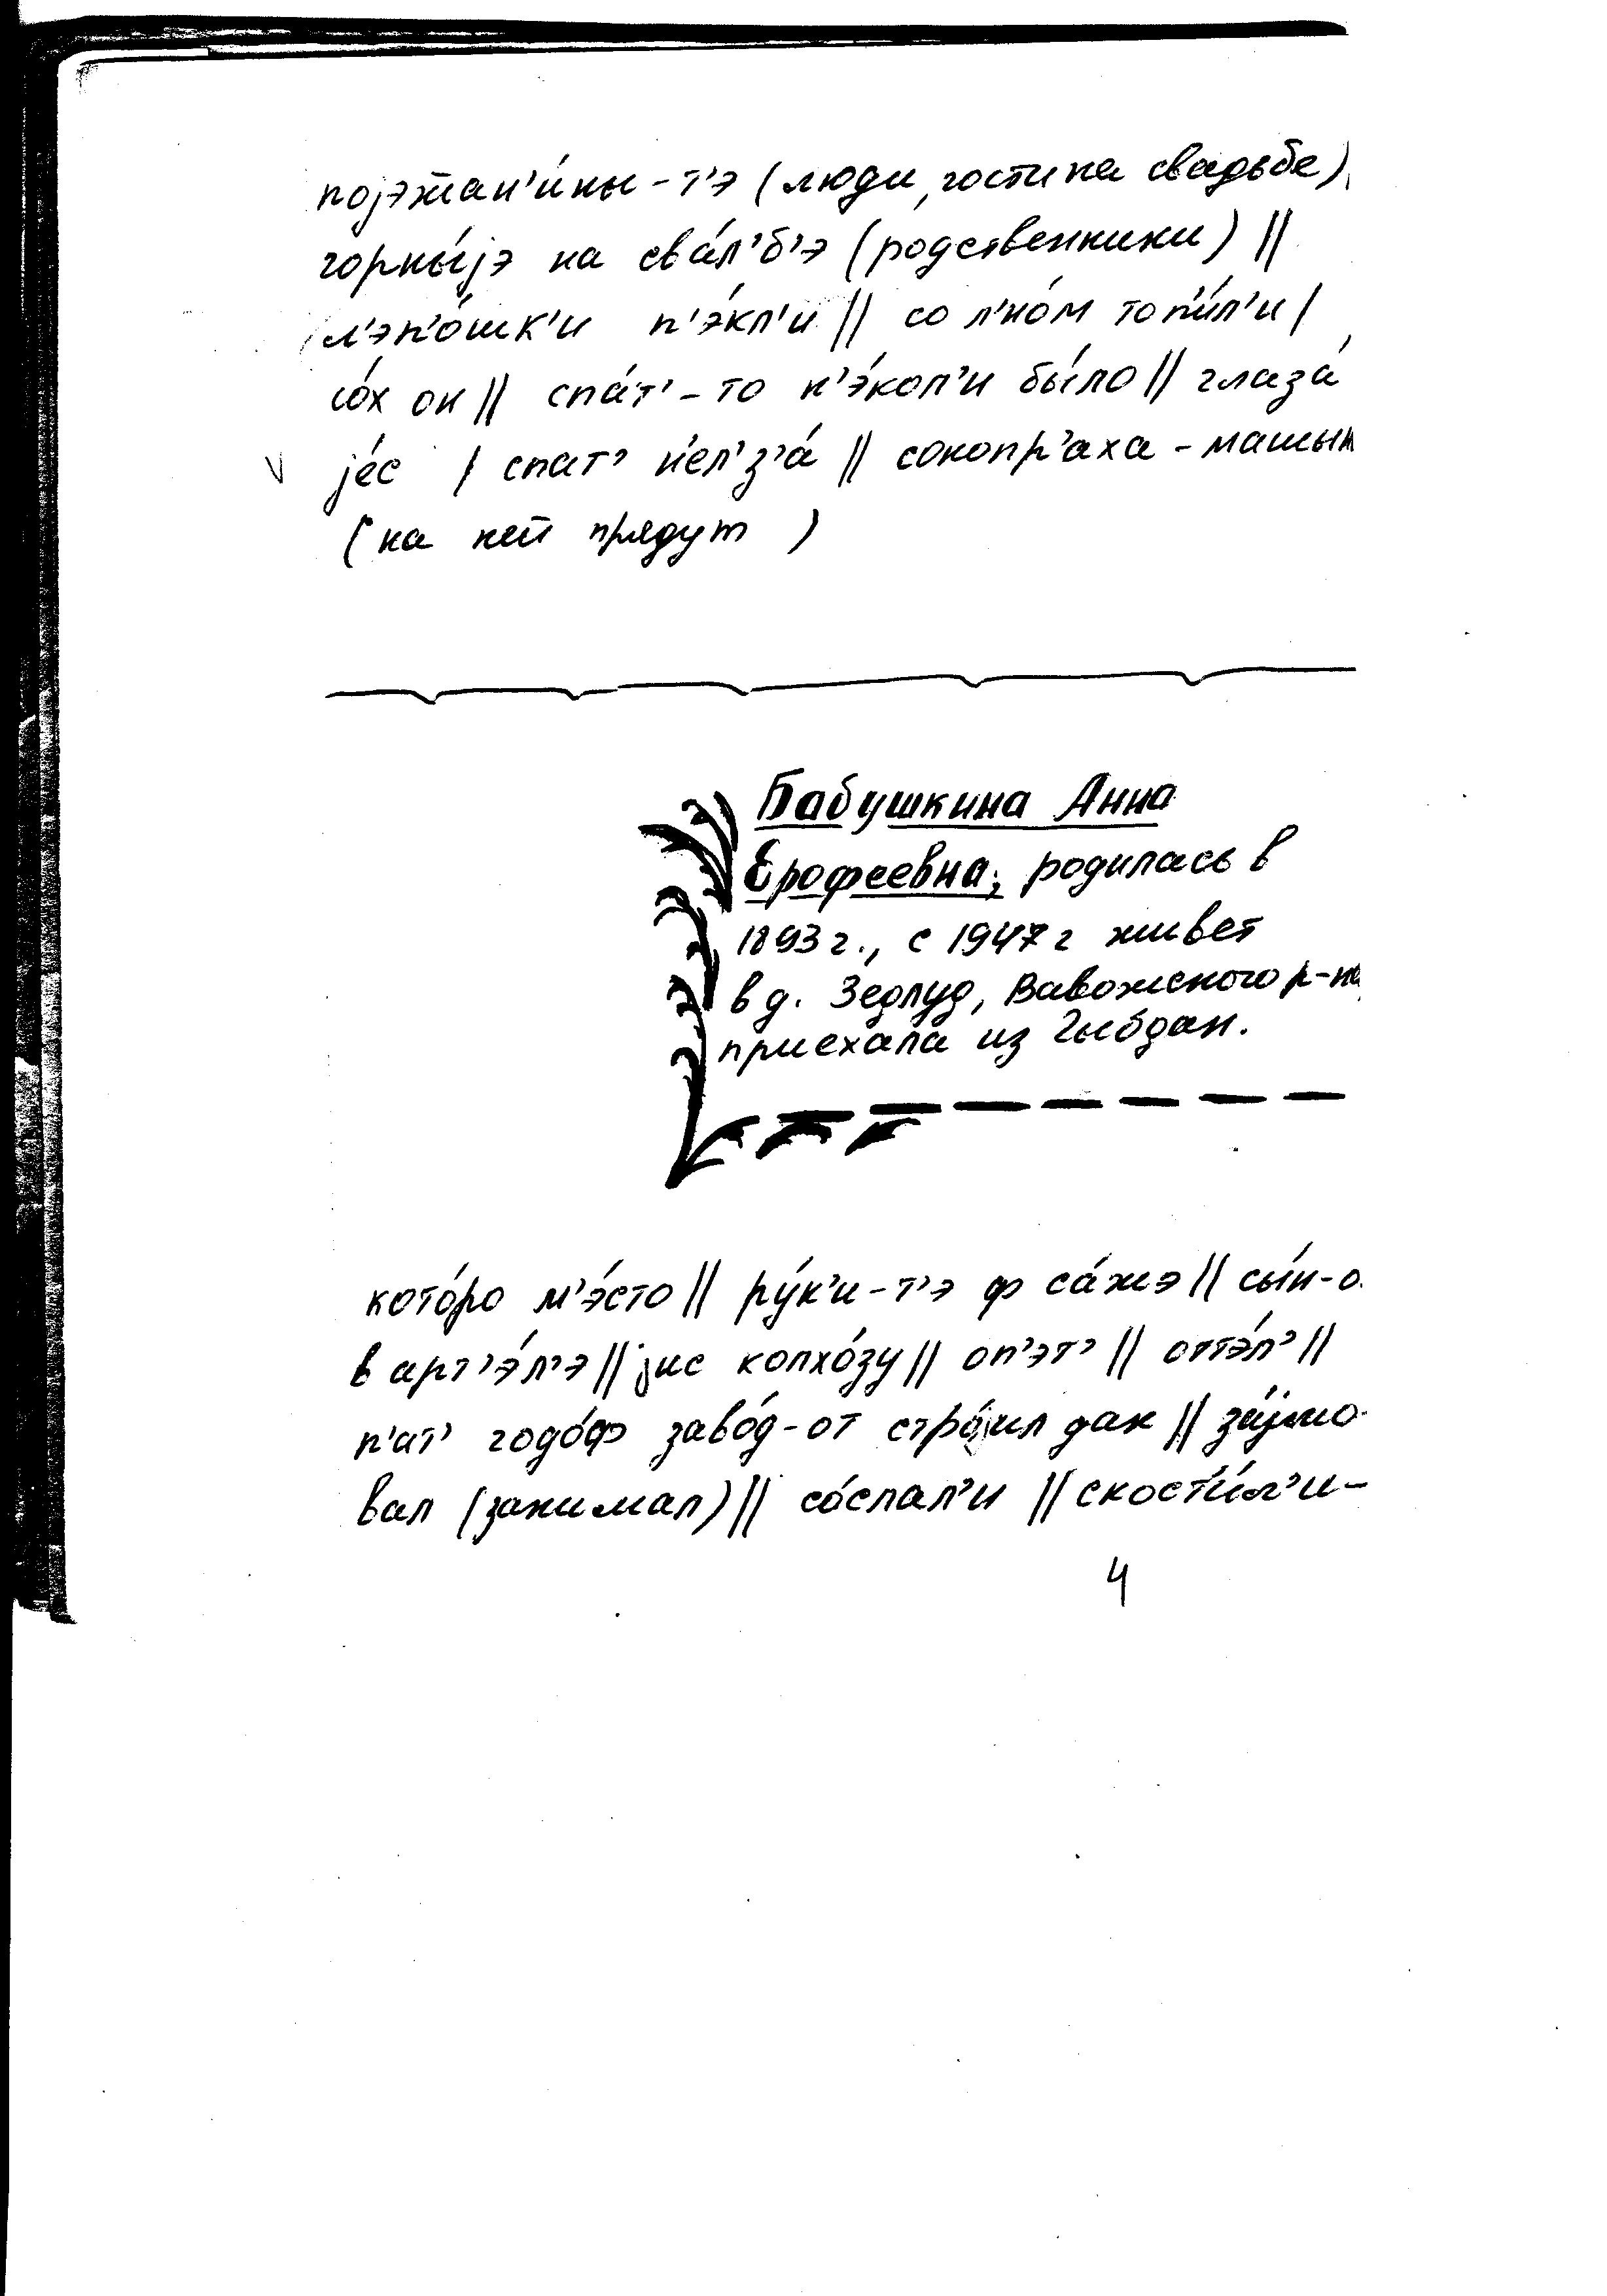 појэжан'и́ны-т'э (люди, гости на свадьбе)
горны́јэ на сва́л'б'э (родственники) ||
л'эп'о́шк'и п'э́кл'и || со л'но́м топи́л'и |
со́х он || спа́т'-то н'э́кол'и бы́ло || глаза́
јéс | спат' нел'з'а́ || сокопр'аха - машын
(на ней прядут)
Бабушкина Анна
Ерофеевна, родилась в
1893 г., с 1947 г живет
в д. Зедлуд, Вавожского р-на
приехала из Гыбдан.
кото́ро м'э́сто || ру́к'и-т'э ф са́жэ || сы́н-о
в арт'э́л'э || јис колхо́зу || оп'эт' || оттэ́л' ||
п'ат' годо́ф заво́д-от стро́јил дак || за́јмо-
вал (занимал) || со́слал'и || скости́л'и-
4